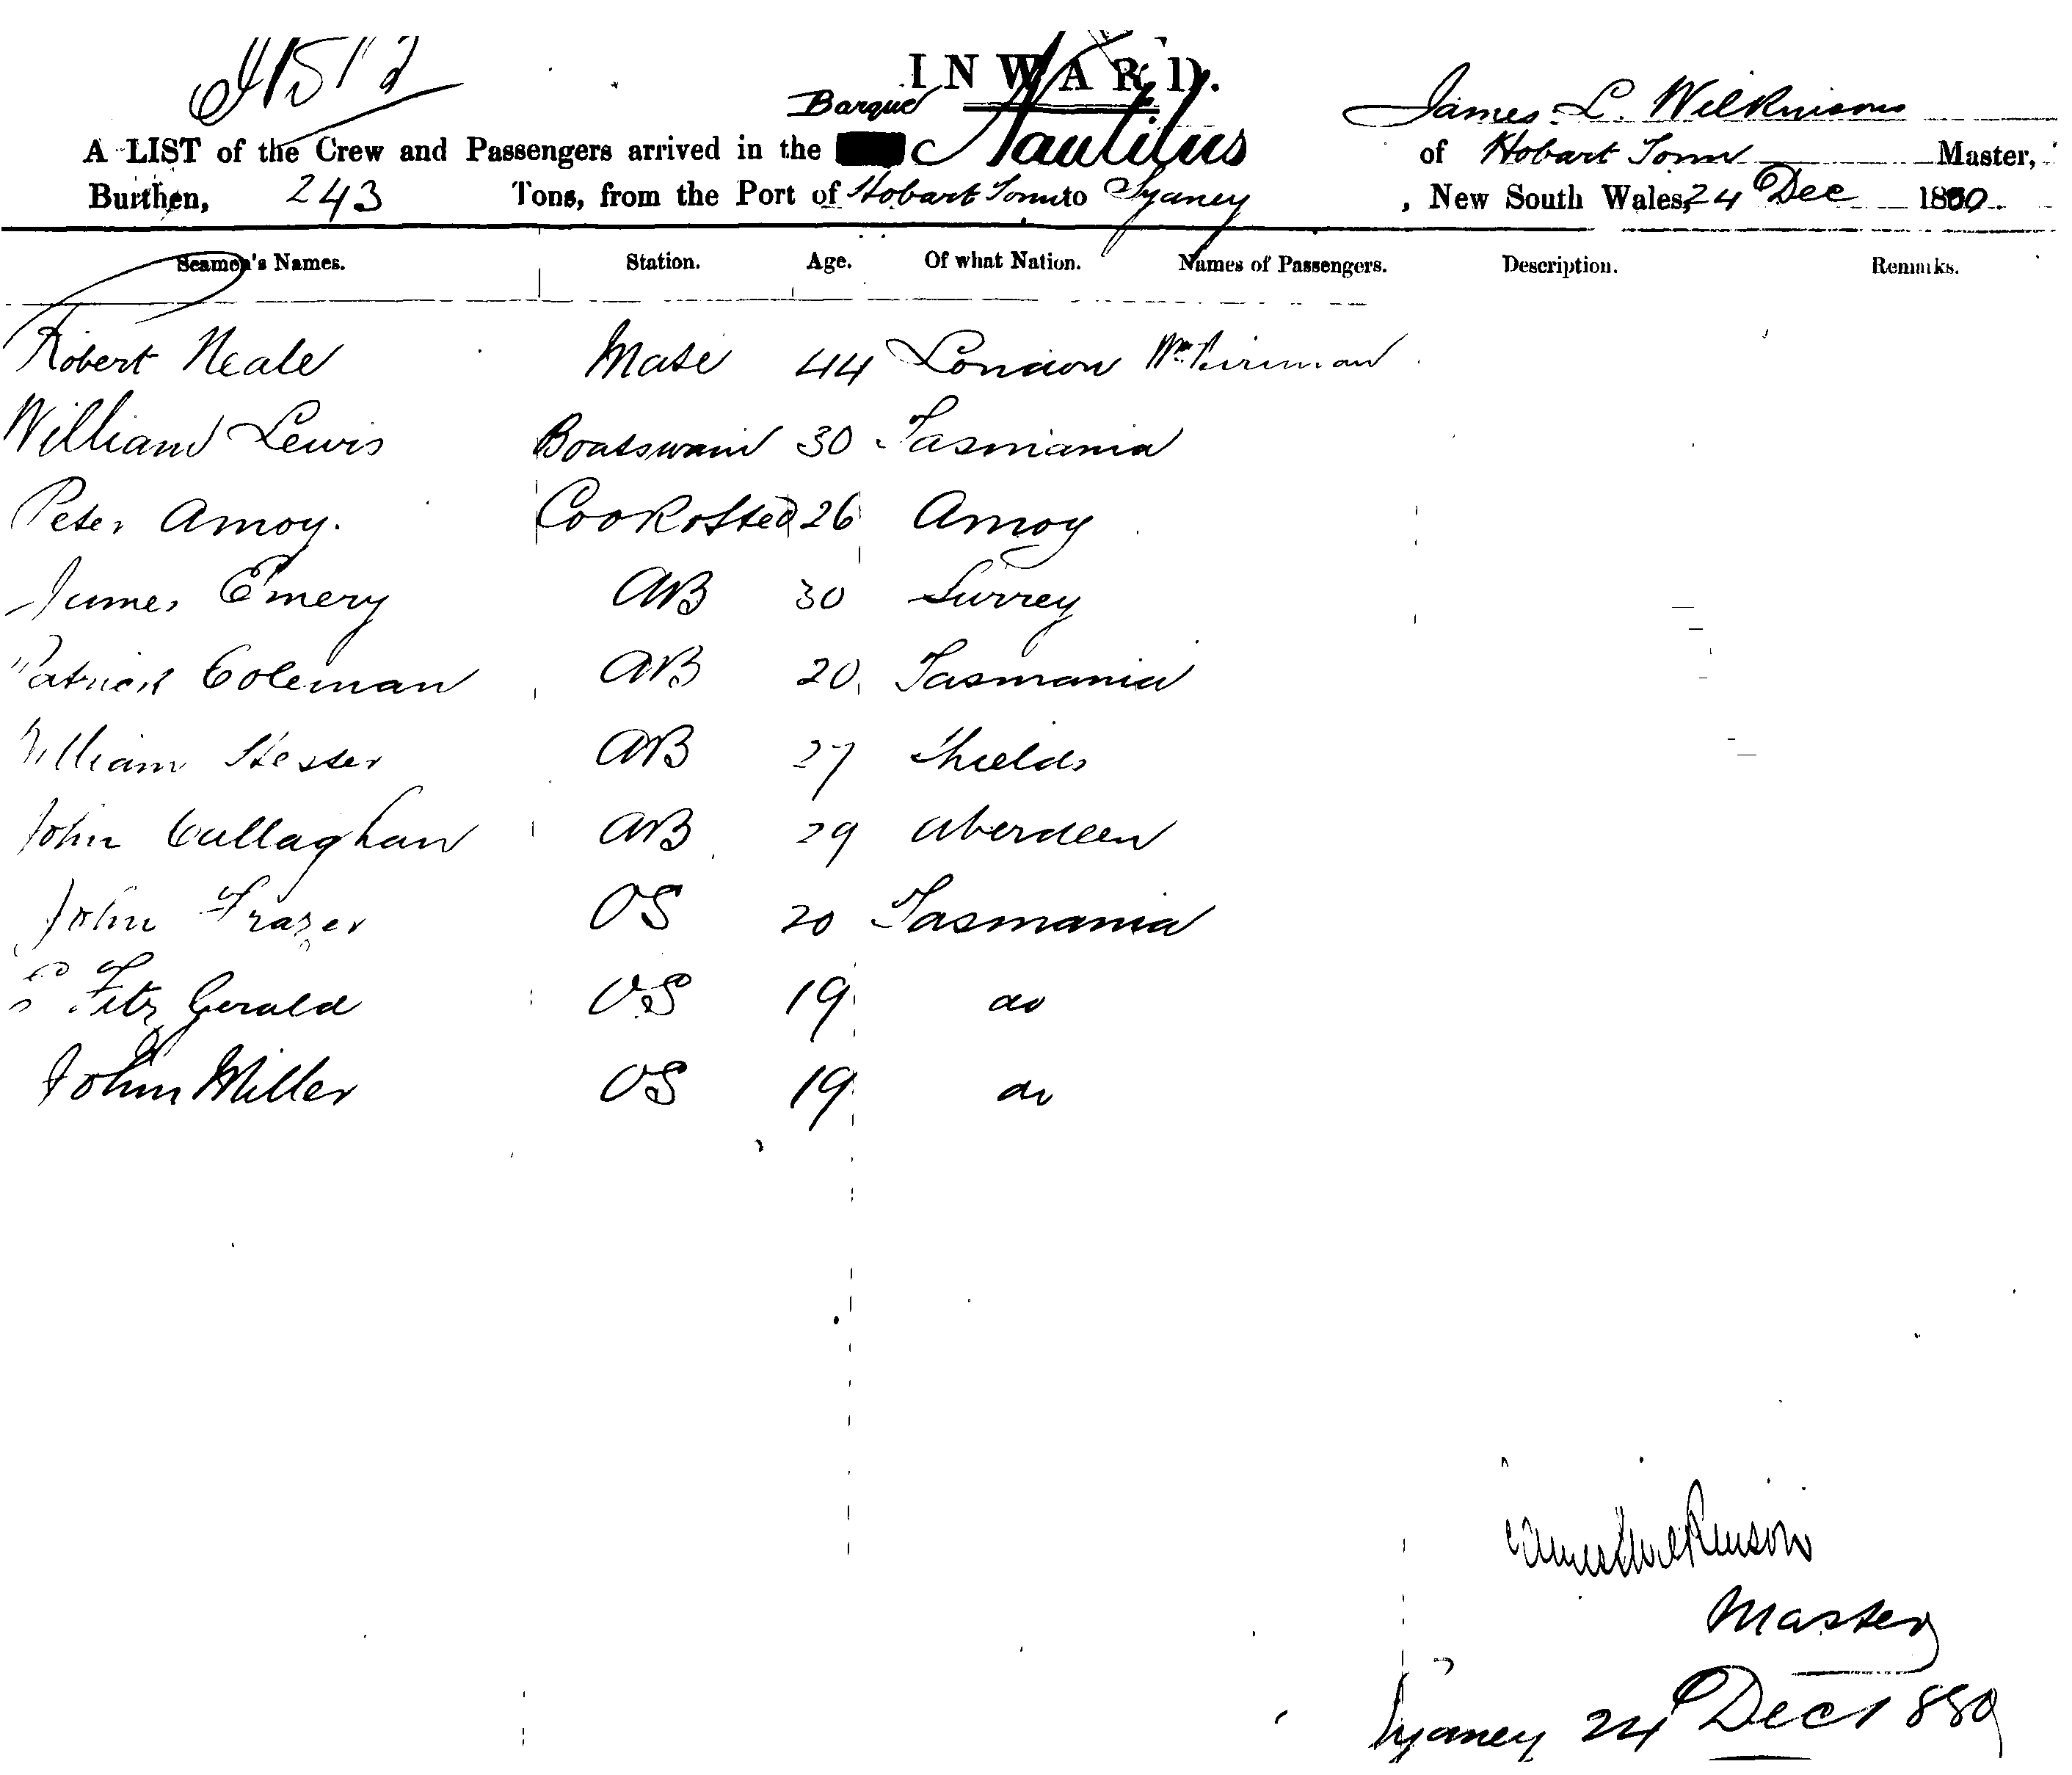 INWARD.
Barque James L. Wilkinson
A LIST of the Crew and Passengers arrived in the Nautilus of Hobart Town Master,
Burthen, 243 Tons, from the Port of Hobart Town to Sydney, New South Wales, 24 Dec 1880.
Seamen's Names. Station. Age. Of what Nation. Names of Passengers. Description. Remarks.
Robert Neale Mate 44 London Wm
William Lewis Boatswain 30 Tasmania
Peter Amoy. Cook & Sted 26 Amoy
James Emery AB 30 Surrey
Patrick Coleman AB 20 Tasmania
William Hester AB 27 Shields
John Callaghan AB 29 Aberdeen
John Frazer OS 20 Tasmania
Fitz Gerald OS 19 do
John Miller OS 19 do
James L Wilkinson
Master
Sydney 24 Dec 1880